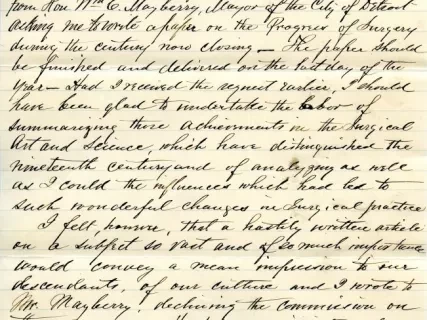 from Hon Wm C. Mayberry, Mayor of the City of Detroit
asking me to write a paper on the Progress of Surgery
during the century now closing — The paper should
be finished and delivered on the last day of the
year — Had I received the request earlier, I should
have been glad to undertake the labor of
summarizing those achievements in the Surgical
Art and Science, which have distinguished the
nineteenth century and of analyzing as well
as I could the influences which had led to
such wonderful changes in Surgical practice
I felt, however, that a hastily written article
on a subject so vast and of so much importance
would convey a mean impression to our
descendants, of our culture and I wrote to
Mr. Mayberry, declining the commission on